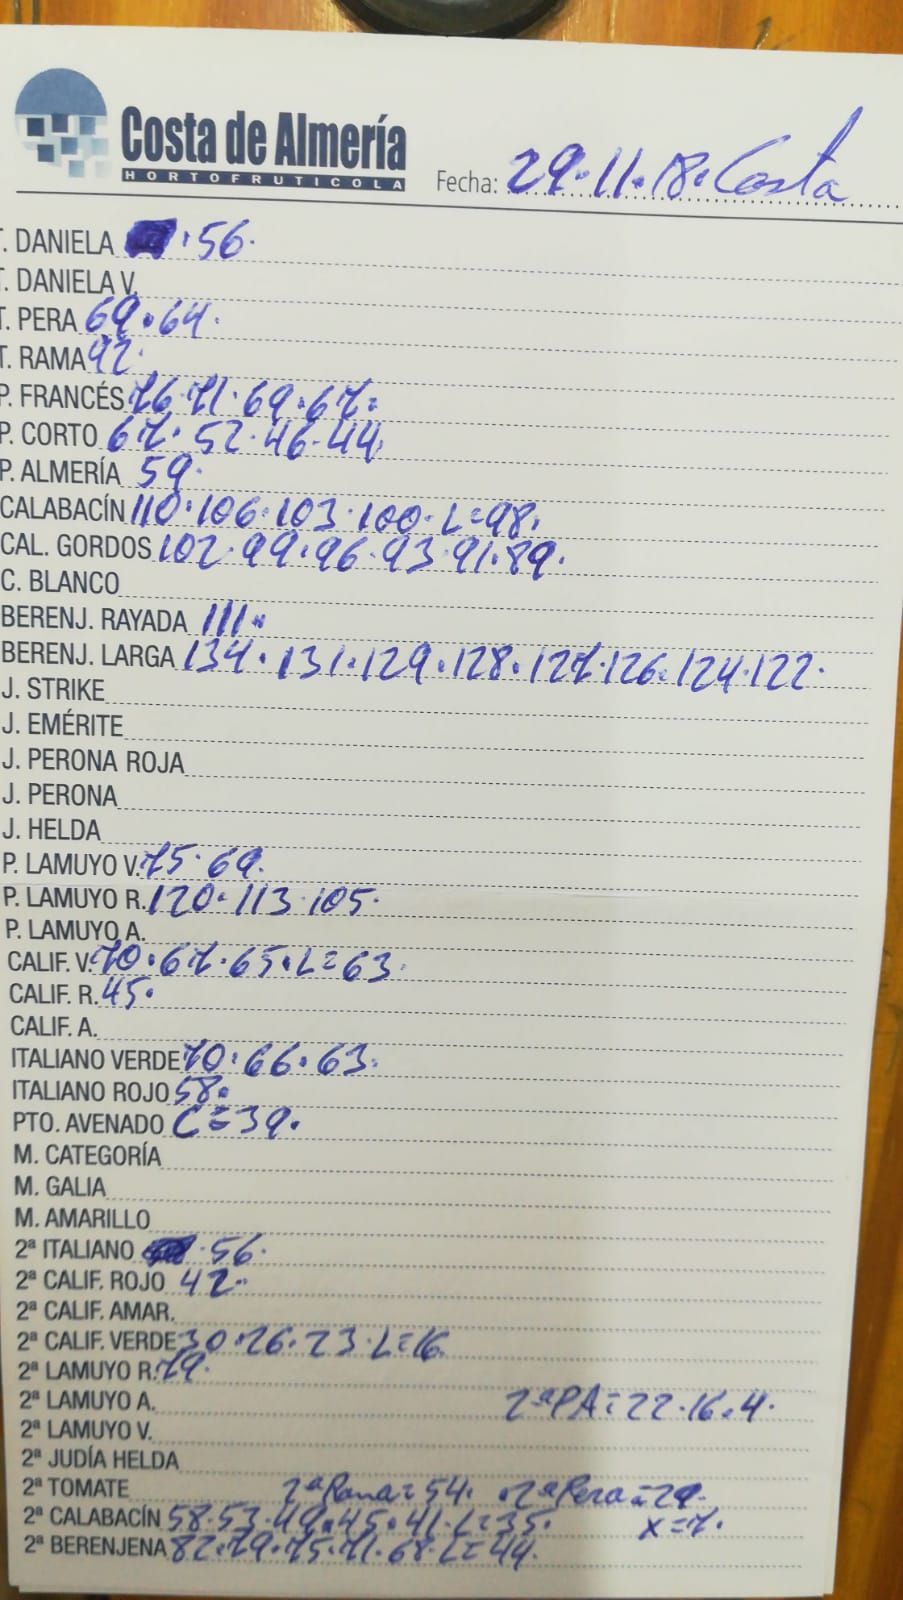 Costa de Almería
HORTOFRUTICOLA
Fecha: 29·11·18· Costa
T. DANIELA ·56·
T. DANIELA V.
T. PERA 69·64·
T. RAMA 92·
P. FRANCÉS 76·71·69·67·
P. CORTO 67·52·46·44
P. ALMERÍA 59·
CALABACÍN 110·106·103·100·L=98·
CAL. GORDOS 102·99·96·93·91·89·
C. BLANCO
BERENJ. RAYADA 111·
BERENJ. LARGA 134·131·129·128·127·126·124·122·
J. STRIKE
J. EMÉRITE
J. PERONA ROJA
J. PERONA
J. HELDA
P. LAMUYO V. 75·69·
P. LAMUYO R. 120·113·105·
P. LAMUYO A.
CALIF. V. 70·67·65·L=63·
CALIF. R. 45·
CALIF. A.
ITALIANO VERDE 70·66·63·
ITALIANO ROJO 58·
PTO. AVENADO C=39·
M. CATEGORÍA
M. GALIA
M. AMARILLO
2ª ITALIANO ·56·
2ª CALIF. ROJO 42·
2ª CALIF. AMAR.
2ª CALIF. VERDE 30·26·23·L=16
2ª LAMUYO R. 79·
2ª LAMUYO A. 2ªPA=22·16·4·
2ª LAMUYO V.
2ª JUDÍA HELDA
2ª TOMATE 2ªRama=54· ·2ªPera=29·
2ª CALABACÍN 58·53·49·45·41·L=35· x=7·
2ª BERENJENA 82·79·75·71·68·L=44·